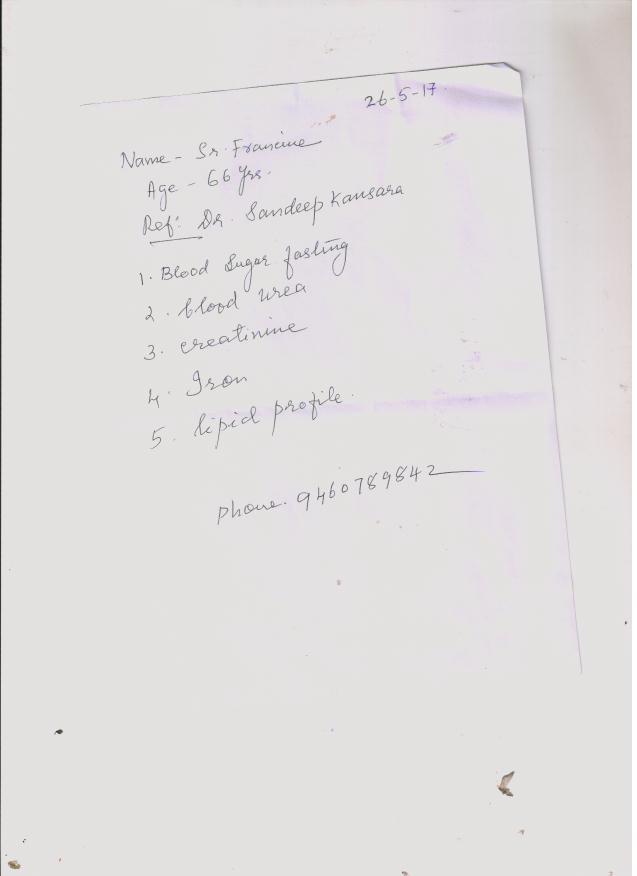 26-5-17.
Name - Sr. Francine
Age - 66 Yrs.
Ref: Dr. Sandeep Kansara
1. Blood Sugar fasting
2. blood urea
3. creatinine
4. Iron
5. lipid profile.
phone. 9460789842